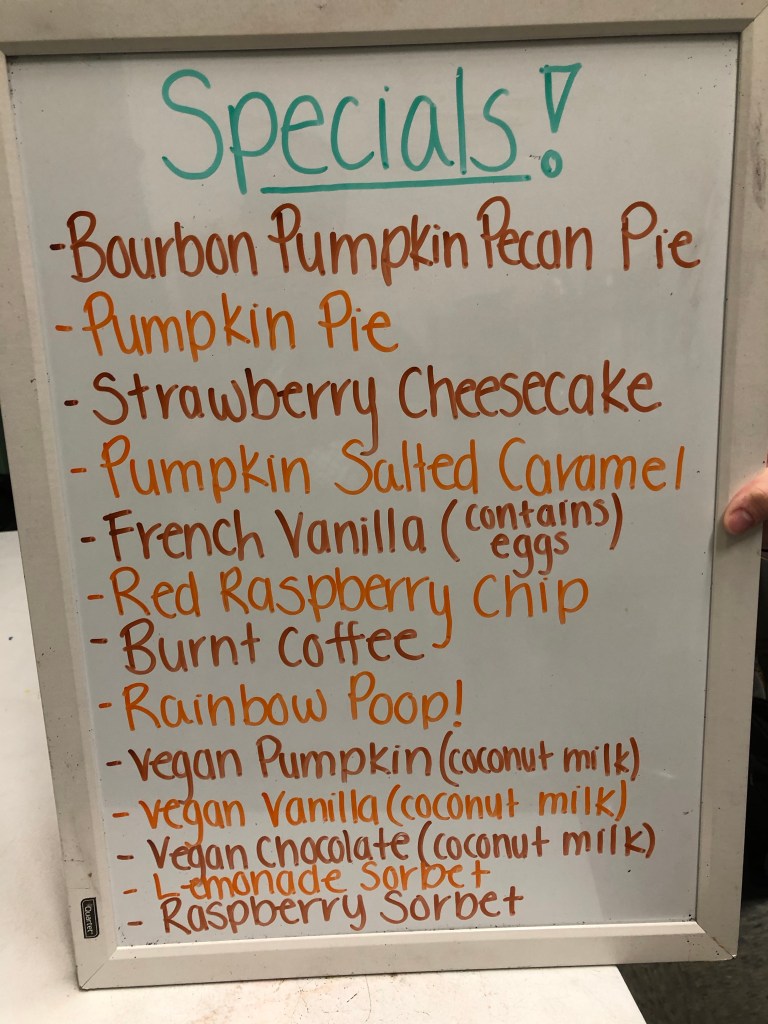 Specials!
-Bourbon Pumpkin Pecan Pie
-Pumpkin Pie
-Strawberry Cheesecake
-Pumpkin Salted Caramel
-French Vanilla (contains eggs)
-Red Raspberry Chip
-Burnt Coffee
-Rainbow Poop!
-Vegan Pumpkin (coconut milk)
-Vegan Vanilla (coconut milk)
-Vegan Chocolate (coconut milk)
-Lemonade Sorbet
-Raspberry Sorbet
Quartet